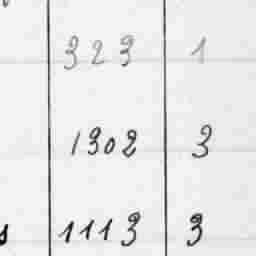 323 1
1302 3
1113 3